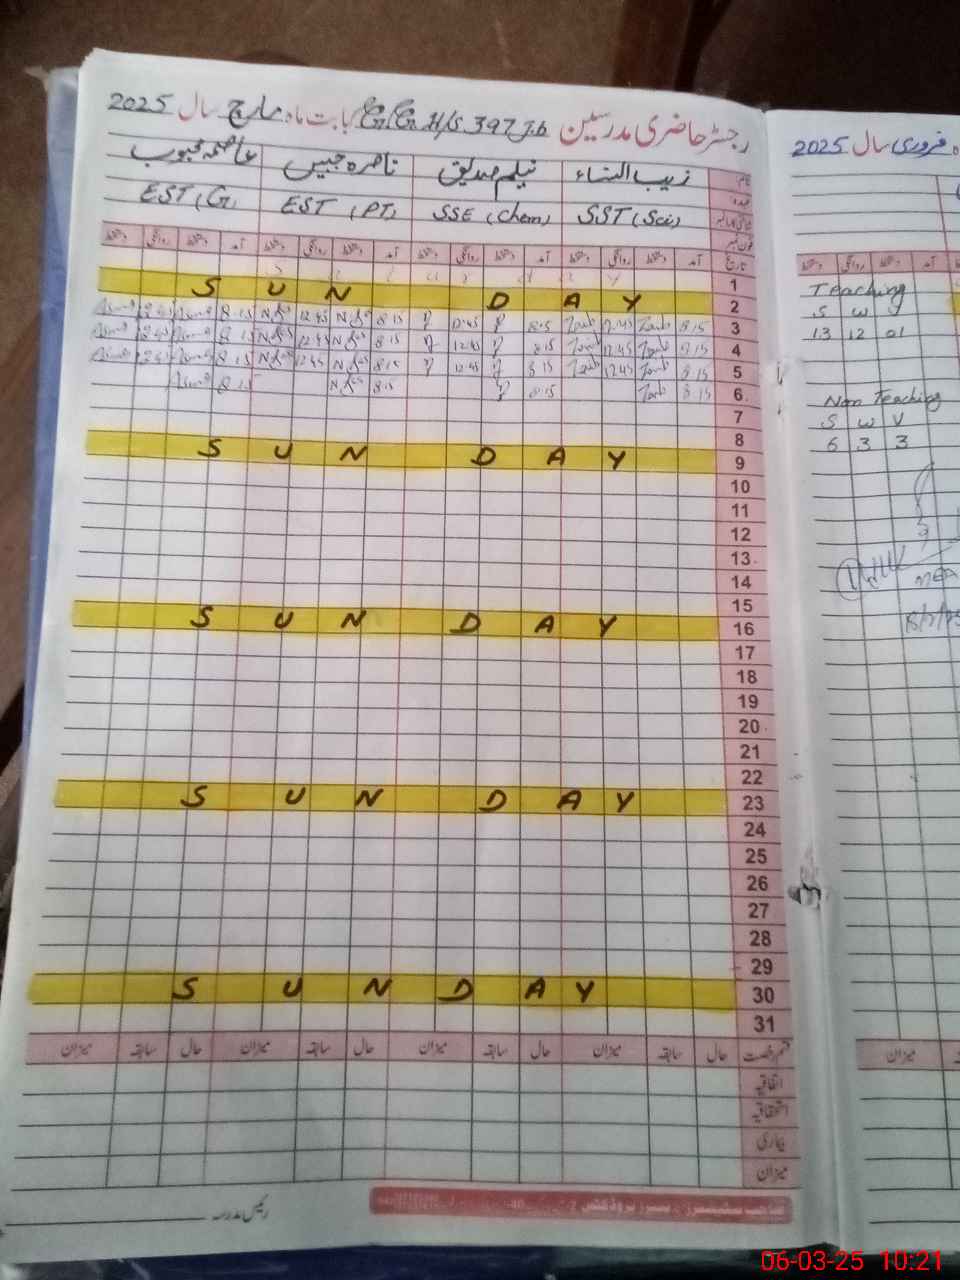 رجسٹر حاضری مدرسین G.G.H/S 397 J.b بابت ماہ مارچ سال 2025
نام: زیب النساء نیلم صدیق ناصرہ جبیں عاصمہ محبوب
عہدہ: SST (Sci) SSE (Chem) EST (PT) EST (G)
فون نمبر
تاریخ آمد دستخط روانگی دستخط آمد دستخط روانگی دستخط آمد دستخط روانگی دستخط آمد دستخط روانگی دستخط
1
2 S U N D A Y
3 8.15 Zaib 12.45 Zaib 8.15 12.45 8.15 12.45 8.15 Asma 12.45 Asma
4 8.15 Zaib 12.45 Zaib 8.15 12.45 8.15 12.45 8.15 Asma 12.45 Asma
5 8.15 Zaib 12.45 Zaib 8.15 12.45 8.15 12.45 8.15 Asma 12.45 Asma
6 8.15 Zaib 8.15 8.15 8.15 Asma
7
8
9 S U N D A Y
10
11
12
13
14
15
16 S U N D A Y
17
18
19
20
21
22
23 S U N D A Y
24
25
26
27
28
29
30 S U N D A Y
31
قسم رخصت حال سابقہ میزان حال سابقہ میزان حال سابقہ میزان حال سابقہ میزان
اتفاقیہ
استحقاقیہ
بیماری
میزان
رئیس مدرسہ
ہ فروری سال 2025
آمد دستخط روانگی دستخط
Teaching
S W V
13 12 01
Non Teaching
S W V
6 3 3
MEA
میزان
06-03-25 10:21